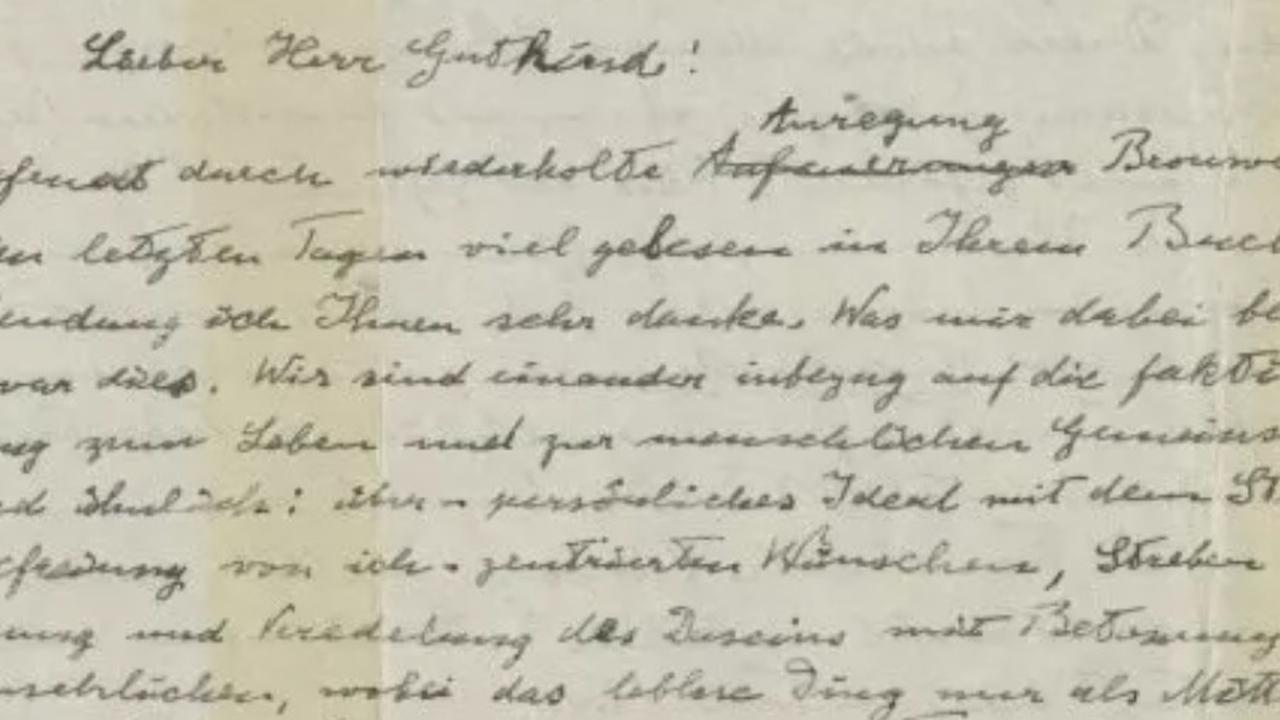 Lieber Herr Gutkind!
Anregung
angefeuert durch wiederholte Aufmunterungen Brouwe
en letzten Tagen viel gelesen in Ihrem Buch
endung ich Ihnen sehr danke. Was mir dabei be
war dies. Wir sind einander inbezug auf die fakti
ng zum Leben und zur menschlichen Gemeins
nd ähnlich: über-persönliches Ideal mit dem St
efreiung von ich-zentrierten Wünschen, Streben
ung und Veredelung des Daseins mit Betonung
nschlichen, wobei das leblose Ding nur als Mitt